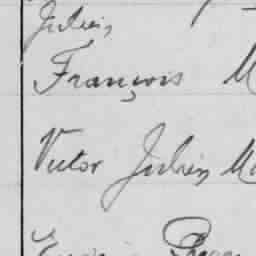 Julien,
François M
Victor Julien Ma